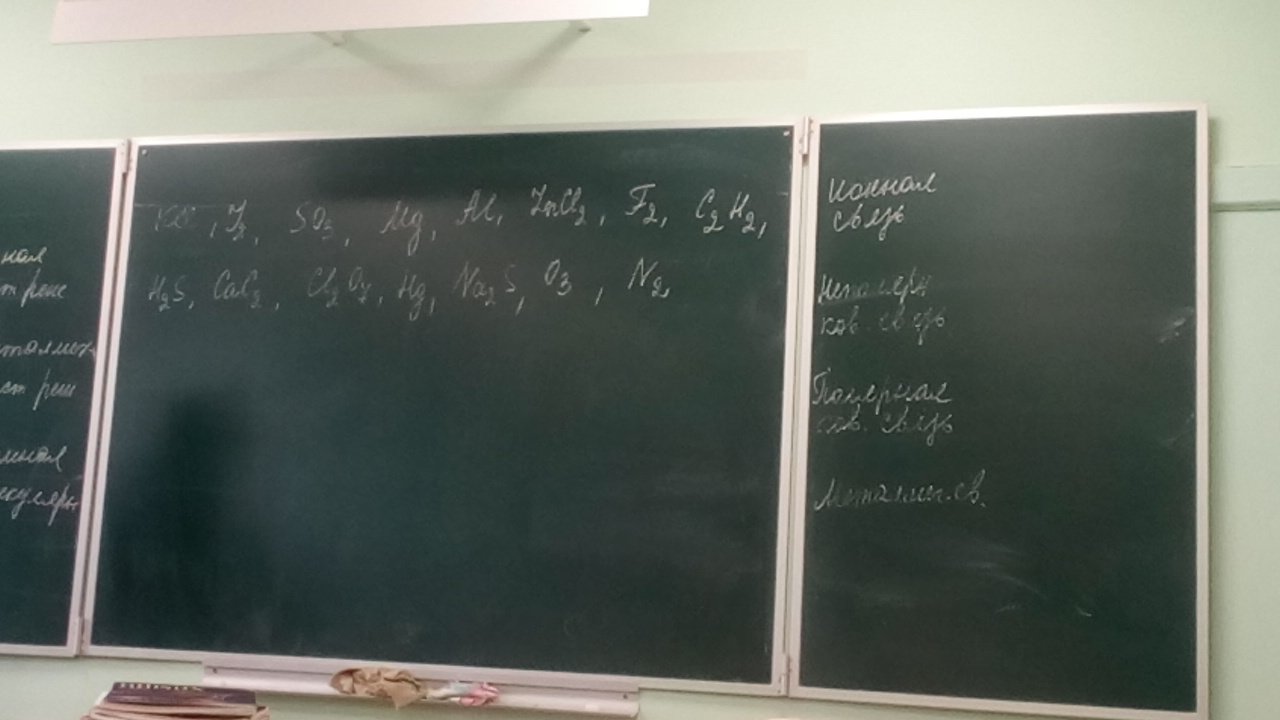 ная
т реше
таллич
ст реш
мная
екулярн
, J₂, SO₃, Mg, Al, ZnCl₂, F₂, C₂H₂,
H₂S, CaC₂, Cl₂O₇, Hg, Na₂S, O₃, N₂,
Ионная
связь
Неполярн
ков. связь
Полярная
ков. связь
Металлич. св.